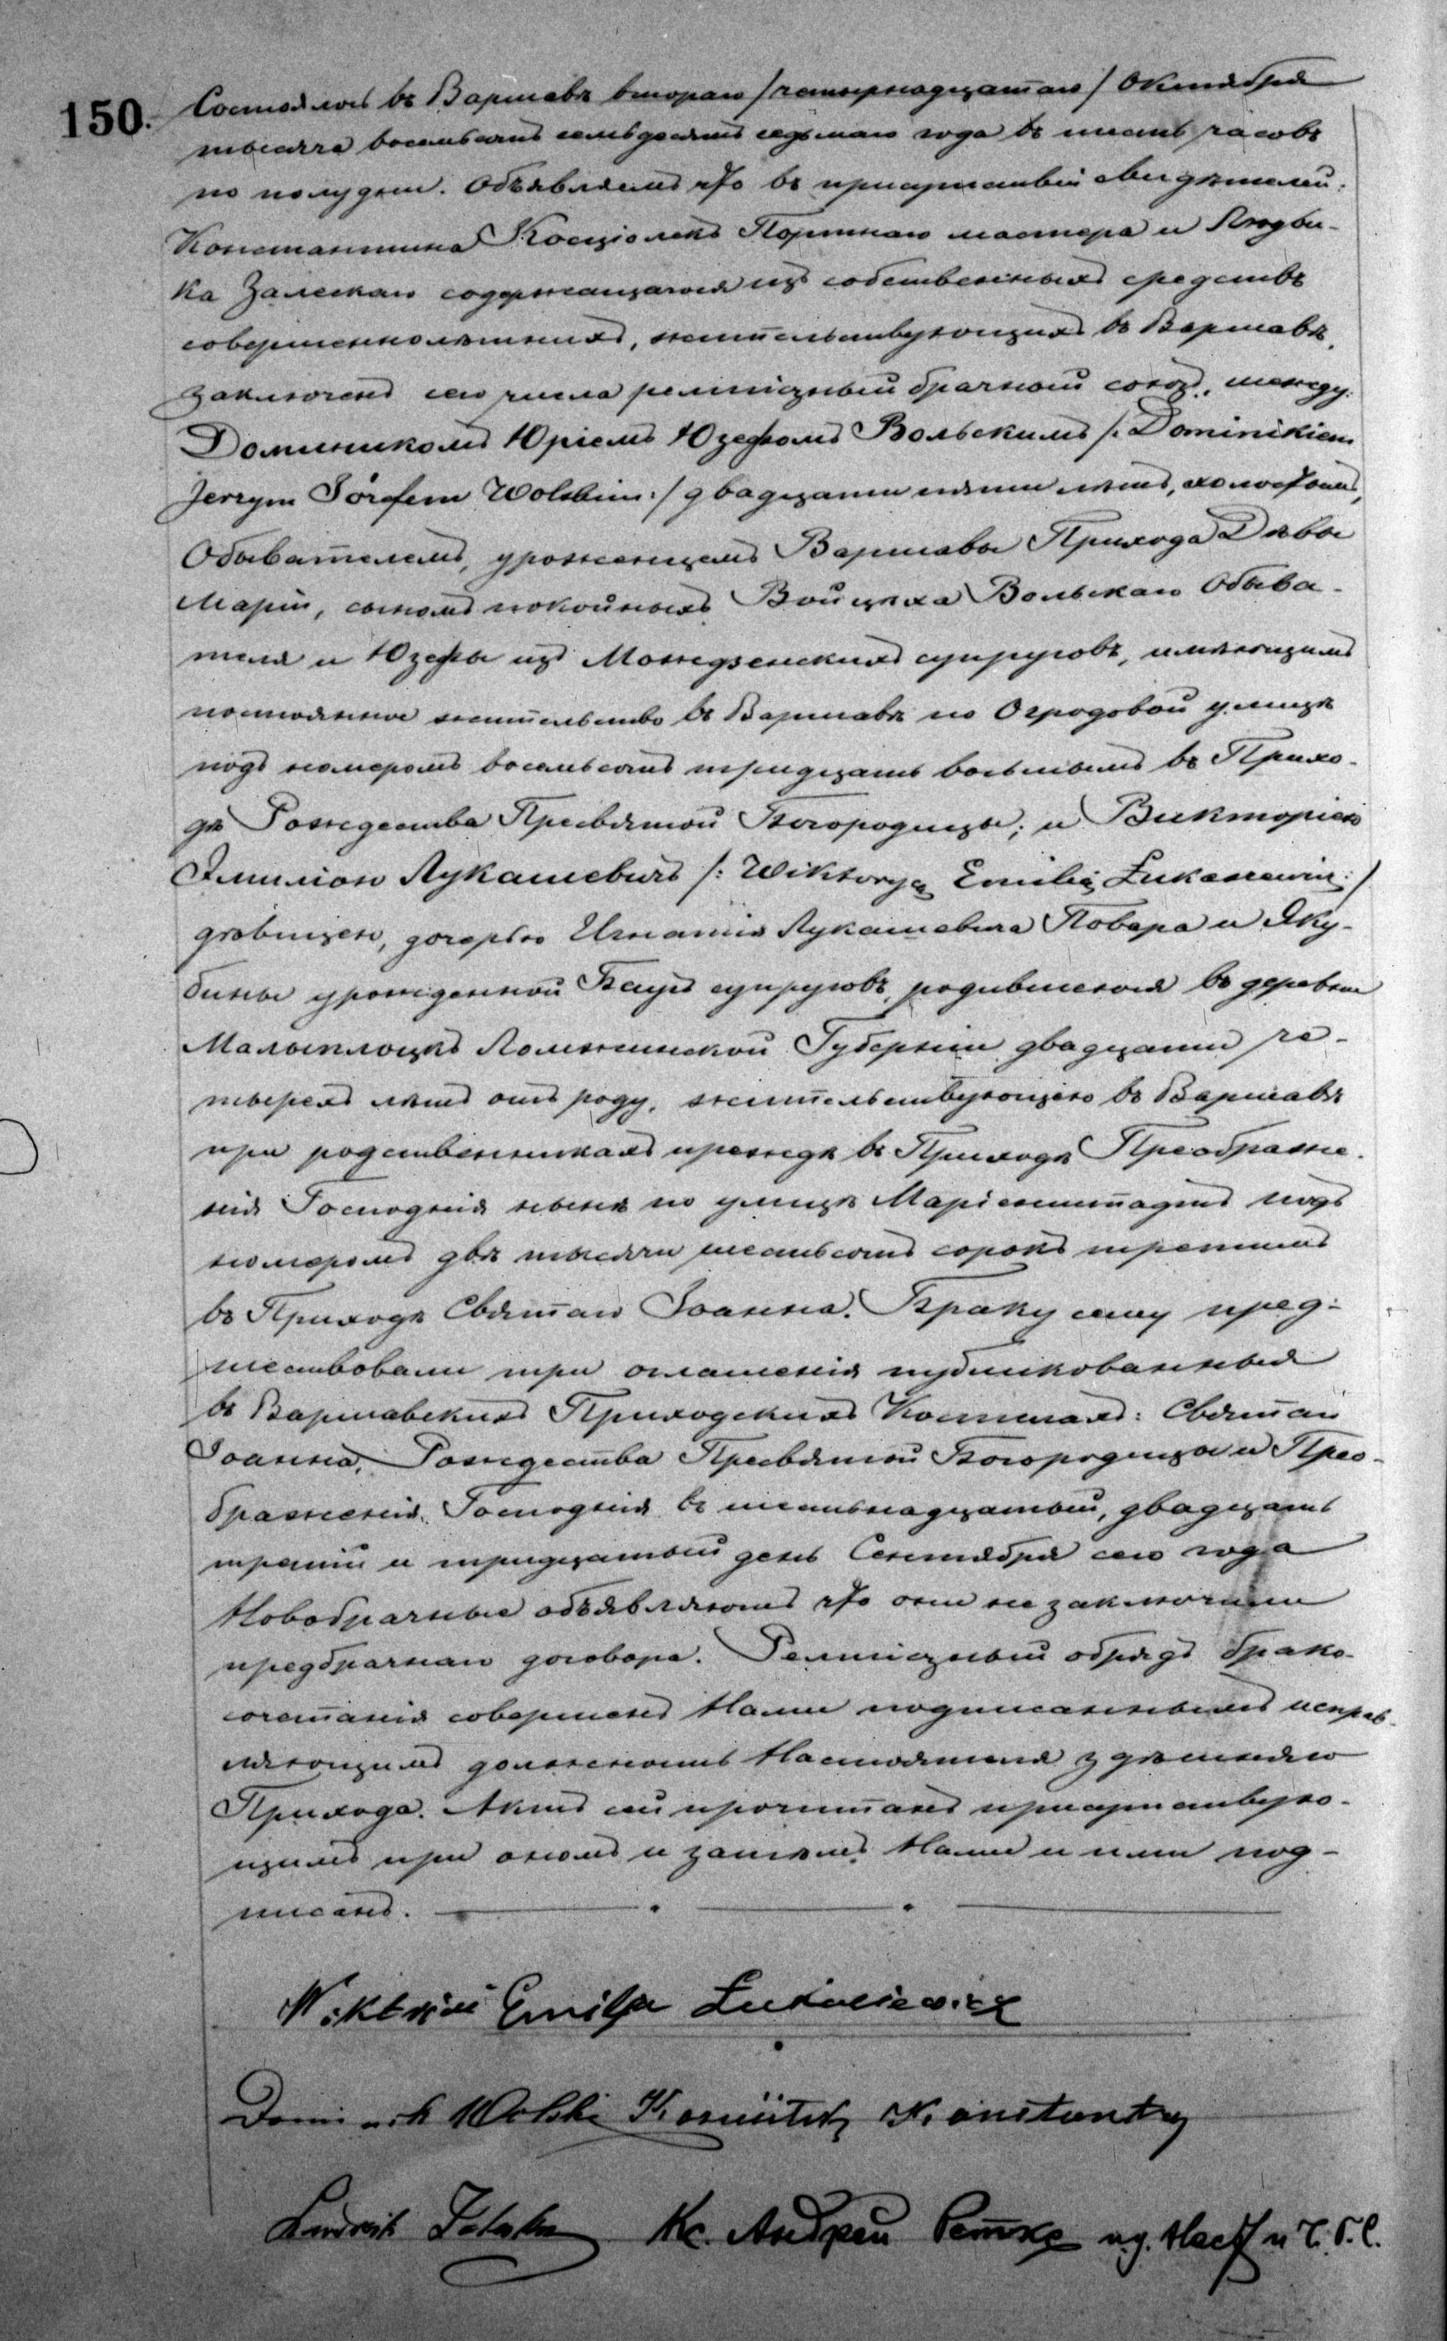 150.
Состоялось въ Варшавѣ втораго /четырнадцатаго/ Октября
тысяча восемьсотъ семьдесятъ седьмаго года въ шесть часовъ
по полудни. Объявляемъ что въ присутствіи свидѣтелей:
Константина Косціолекъ Портнаго мастера и Людви-
ка Залескаго содержащагося изъ собственныхъ средствъ
совершеннолѣтнихъ, жительствующихъ въ Варшавѣ,
заключенъ сего числа религіозный брачный союзъ, между:
Доминикомъ Юріемъ Юзефомъ Вольскимъ /: Dominikiem
Jerzym Józefem Wolskim :/ двадцати пяти лѣтъ, холостымъ,
Обывателемъ, уроженцемъ Варшавы Прихода Дѣвы
Маріи, сыномъ покойныхъ Войцѣха Вольскаго Обыва-
теля и Юзефы изъ Мождзенскихъ супруговъ, имѣющимъ
постоянное жительство въ Варшавѣ по Огродовой улицѣ
подъ номеромъ восемьсотъ тридцать восьмымъ въ Прихо-
дѣ Рождества Пресвятой Богородицы; и Викторіею
Эмиліею Лукашевичъ /: Wiktoryą Emilią Łukaszewicz :/
дѣвицею, дочерью Игнатія Лукашевича Повара и Яку-
бины урожденной супруговъ, родившеюся въ деревни
Малыплоцкъ Ломжинской Губерніи двадцати че-
тырехъ лѣтъ отъ роду, жительствующею въ Варшавѣ
при родственникахъ прежде въ Приходѣ Преображе-
нія Господнія нынѣ по улицѣ Маріенштадтъ подъ
номеромъ двѣ тысячи шестьсотъ сорокъ третимъ
въ Приходѣ Святаго Іоанна. Браку сему пред-
шествовали три оглашенія публикованныя
въ Варшавскихъ Приходскихъ Костелахъ: Святаго
Іоанна, Рождества Пресвятой Богородицы и Прео-
браженія Господнія въ шестьнадцатый, двадцать
третій и тридцатый день Сентября сего года
Новобрачные объявляютъ что они не заключили
предбрачнаго договора. Религіозный обрядъ брако-
сочетанія совершенъ Нами подписаннымъ исправ-
ляющимъ должность Настоятеля здѣшняго
Прихода. Актъ сей прочитанъ присутствую-
щимъ при ономъ и затѣмъ Нами и ими под-
писанъ.
Wiktoria Emilja Łukasiewicz
Dominik Wolski Konstanty
Ludwik Zaleski Кс. Андрей Ретке и.д. Наст. и Ч. Г. С.